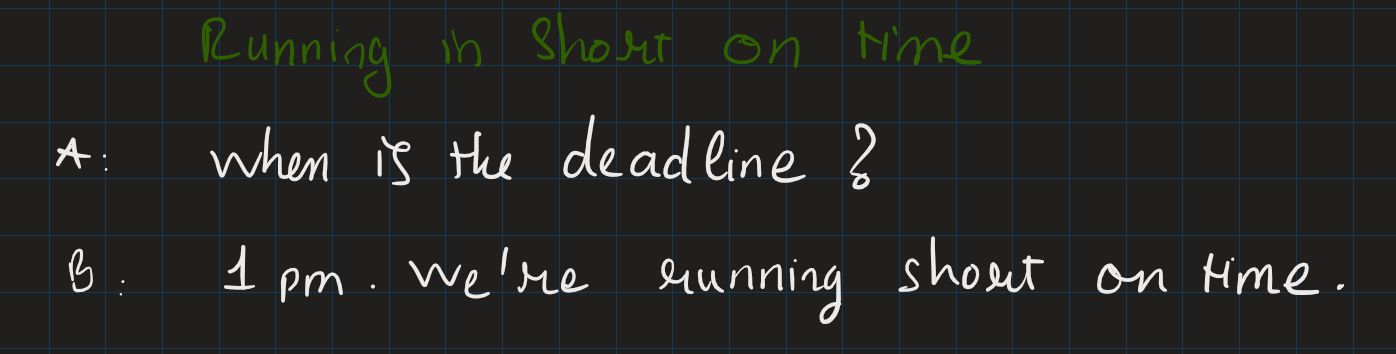 Running in Short on time
A: When is the deadline ?
B: 1 pm. We're running short on time.